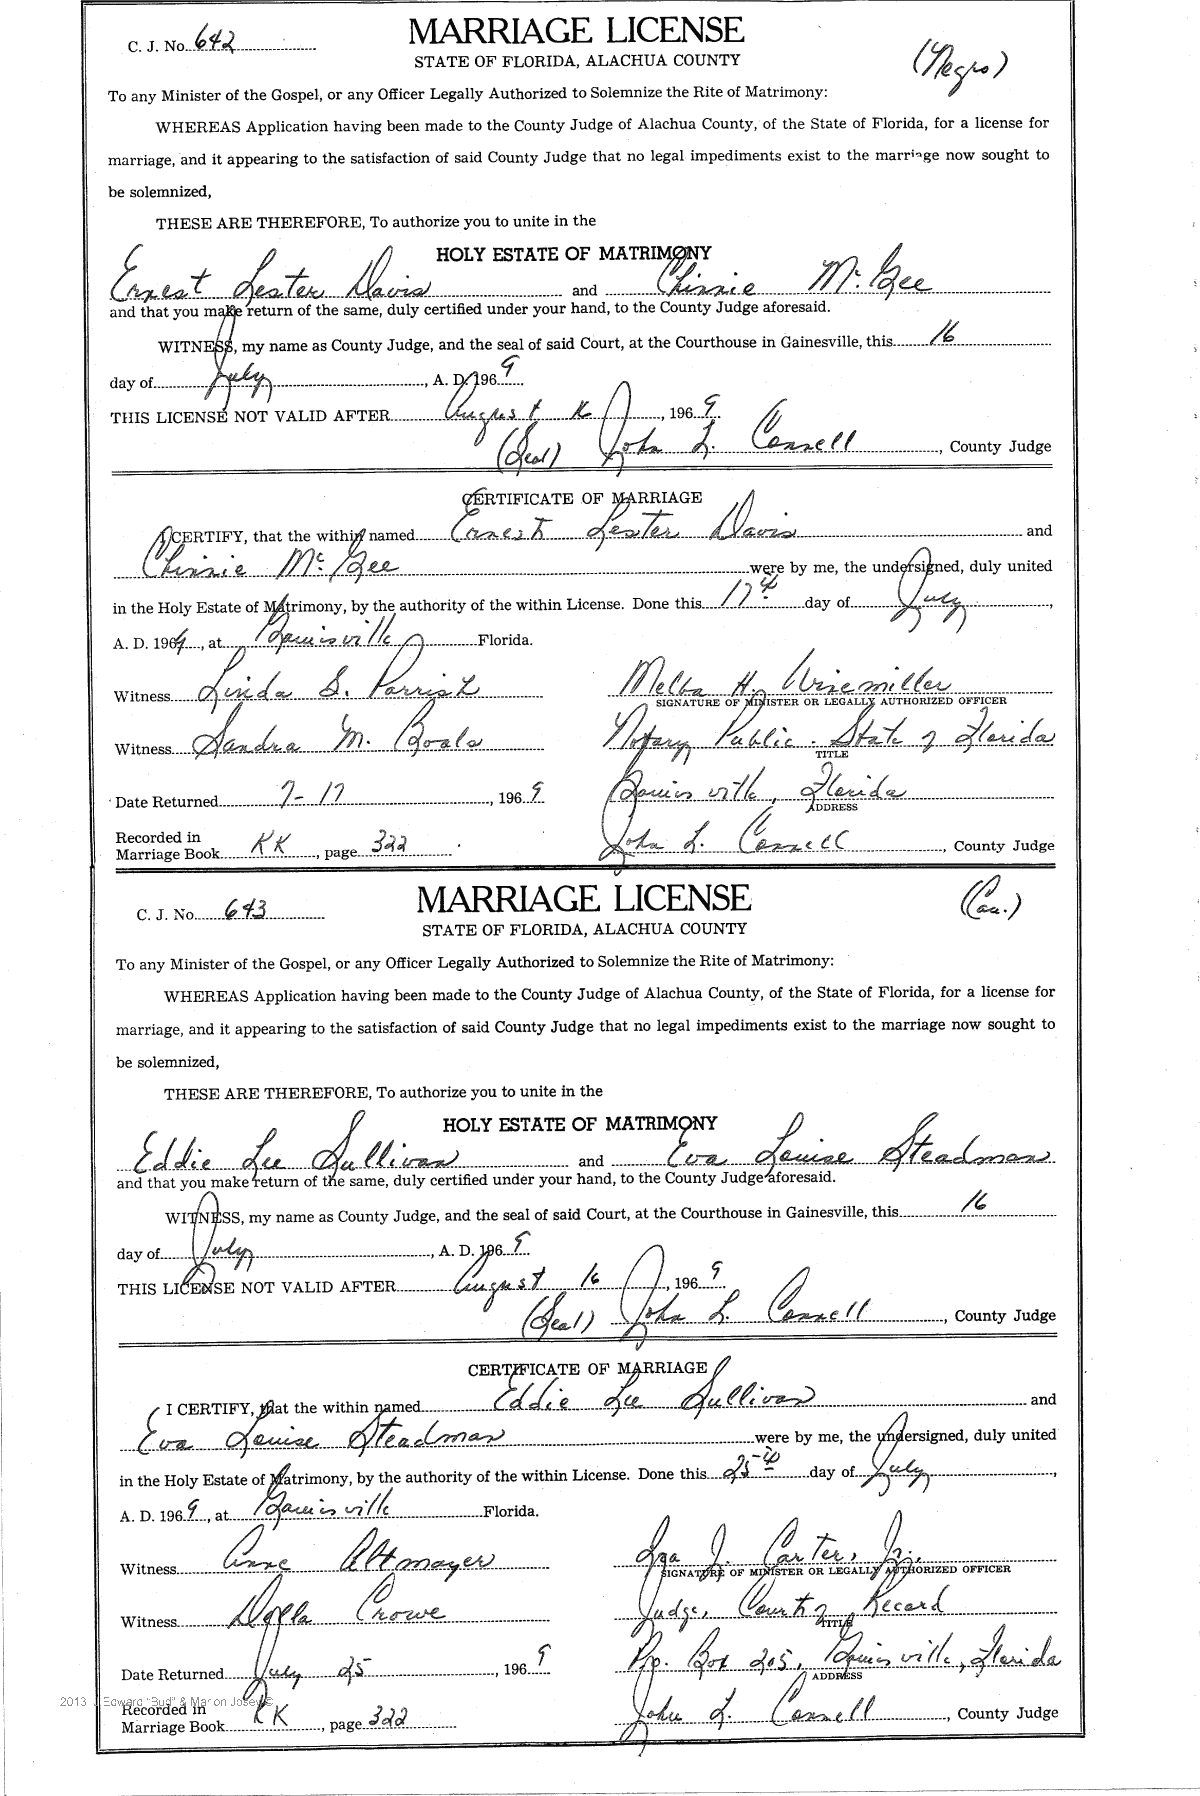 C. J. No. 642
MARRIAGE LICENSE
STATE OF FLORIDA, ALACHUA COUNTY
(Negro)
To any Minister of the Gospel, or any Officer Legally Authorized to Solemnize the Rite of Matrimony:
WHEREAS Application having been made to the County Judge of Alachua County, of the State of Florida, for a license for
marriage, and it appearing to the satisfaction of said County Judge that no legal impediments exist to the marriage now sought to
be solemnized,
THESE ARE THEREFORE, To authorize you to unite in the
HOLY ESTATE OF MATRIMONY
Ernest Lester Davis and Chinnie McGee
and that you make return of the same, duly certified under your hand, to the County Judge aforesaid.
WITNESS, my name as County Judge, and the seal of said Court, at the Courthouse in Gainesville, this 16
day of July, A. D. 1969
THIS LICENSE NOT VALID AFTER August 16, 1969
(Seal) John L. Connell, County Judge
CERTIFICATE OF MARRIAGE
I CERTIFY, that the within named Ernest Lester Davis and
Chinnie McGee were by me, the undersigned, duly united
in the Holy Estate of Matrimony, by the authority of the within License. Done this 17th day of July,
A. D. 1969, at Gainesville Florida.
Witness Linda S. Parrish Melba H. Winemiller
SIGNATURE OF MINISTER OR LEGALLY AUTHORIZED OFFICER
Witness Sandra M. Boals Notary Public - State of Florida
TITLE
Date Returned 7-17, 1969 Gainesville, Florida
ADDRESS
Recorded in
Marriage Book KK, page 322 John L. Connell, County Judge
C. J. No. 643
MARRIAGE LICENSE
STATE OF FLORIDA, ALACHUA COUNTY
(Cau.)
To any Minister of the Gospel, or any Officer Legally Authorized to Solemnize the Rite of Matrimony:
WHEREAS Application having been made to the County Judge of Alachua County, of the State of Florida, for a license for
marriage, and it appearing to the satisfaction of said County Judge that no legal impediments exist to the marriage now sought to
be solemnized,
THESE ARE THEREFORE, To authorize you to unite in the
HOLY ESTATE OF MATRIMONY
Eddie Lee Sullivan and Eva Louise Steadman
and that you make return of the same, duly certified under your hand, to the County Judge aforesaid.
WITNESS, my name as County Judge, and the seal of said Court, at the Courthouse in Gainesville, this 16
day of July, A. D. 1969
THIS LICENSE NOT VALID AFTER August 16, 1969
(Seal) John L. Connell, County Judge
CERTIFICATE OF MARRIAGE
I CERTIFY, that the within named Eddie Lee Sullivan and
Eva Louise Steadman were by me, the undersigned, duly united
in the Holy Estate of Matrimony, by the authority of the within License. Done this 25th day of July,
A. D. 1969, at Gainesville Florida.
Witness Anne Altmayer Ira J. Carter, Jr.
SIGNATURE OF MINISTER OR LEGALLY AUTHORIZED OFFICER
Witness Crowe Judge, Court of Record
TITLE
Date Returned July 25, 1969 P.o. Box 205, Gainesville, Florida
ADDRESS
2013 J. Edward "Bud" & Marion Josey ©
Recorded in
Marriage Book KK, page 322 John L. Connell, County Judge